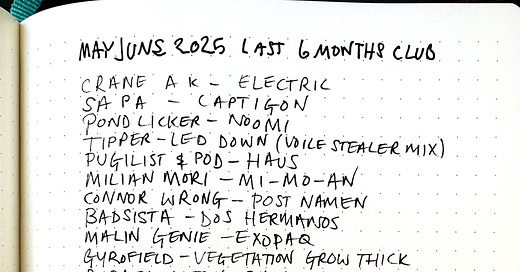 MAY JUNE 2025 LAST 6 MONTHS CLUB
CRANE AK – ELECTRIC
SA PA – CAPTIGON
POND LICKER – NOOMI
TIPPER – LED DOWN (VOILE STEALER MIX)
PUGILIST & POD – HAUS
MILIAN MORI – MI-MO-AN
CONNOR WRONG – POST NAMEN
BADSISTA – DOS HERMANOS
MALIN GENIE – EXOPAQ
GYROFIELD – VEGETATION GROW THICK